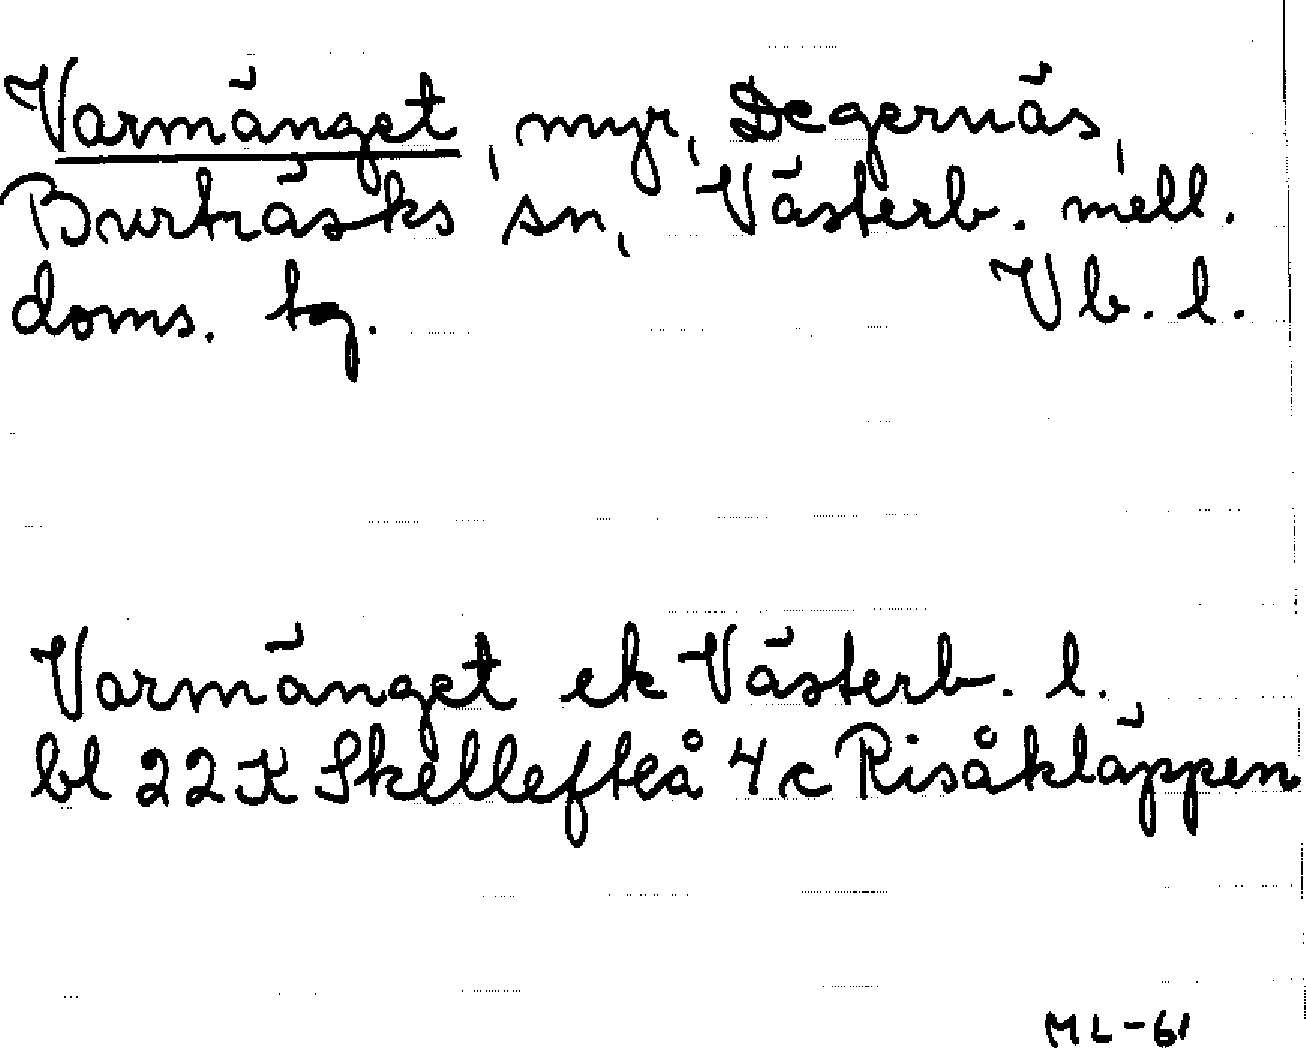 Varmänget, myr, Degernäs,
Burträsks sn, Västerb. mell.
doms. tg. Vb. l.
Varmänget ek Västerb. l.
bl 22K Skellefteå 4c Risåkläppen
ML-61